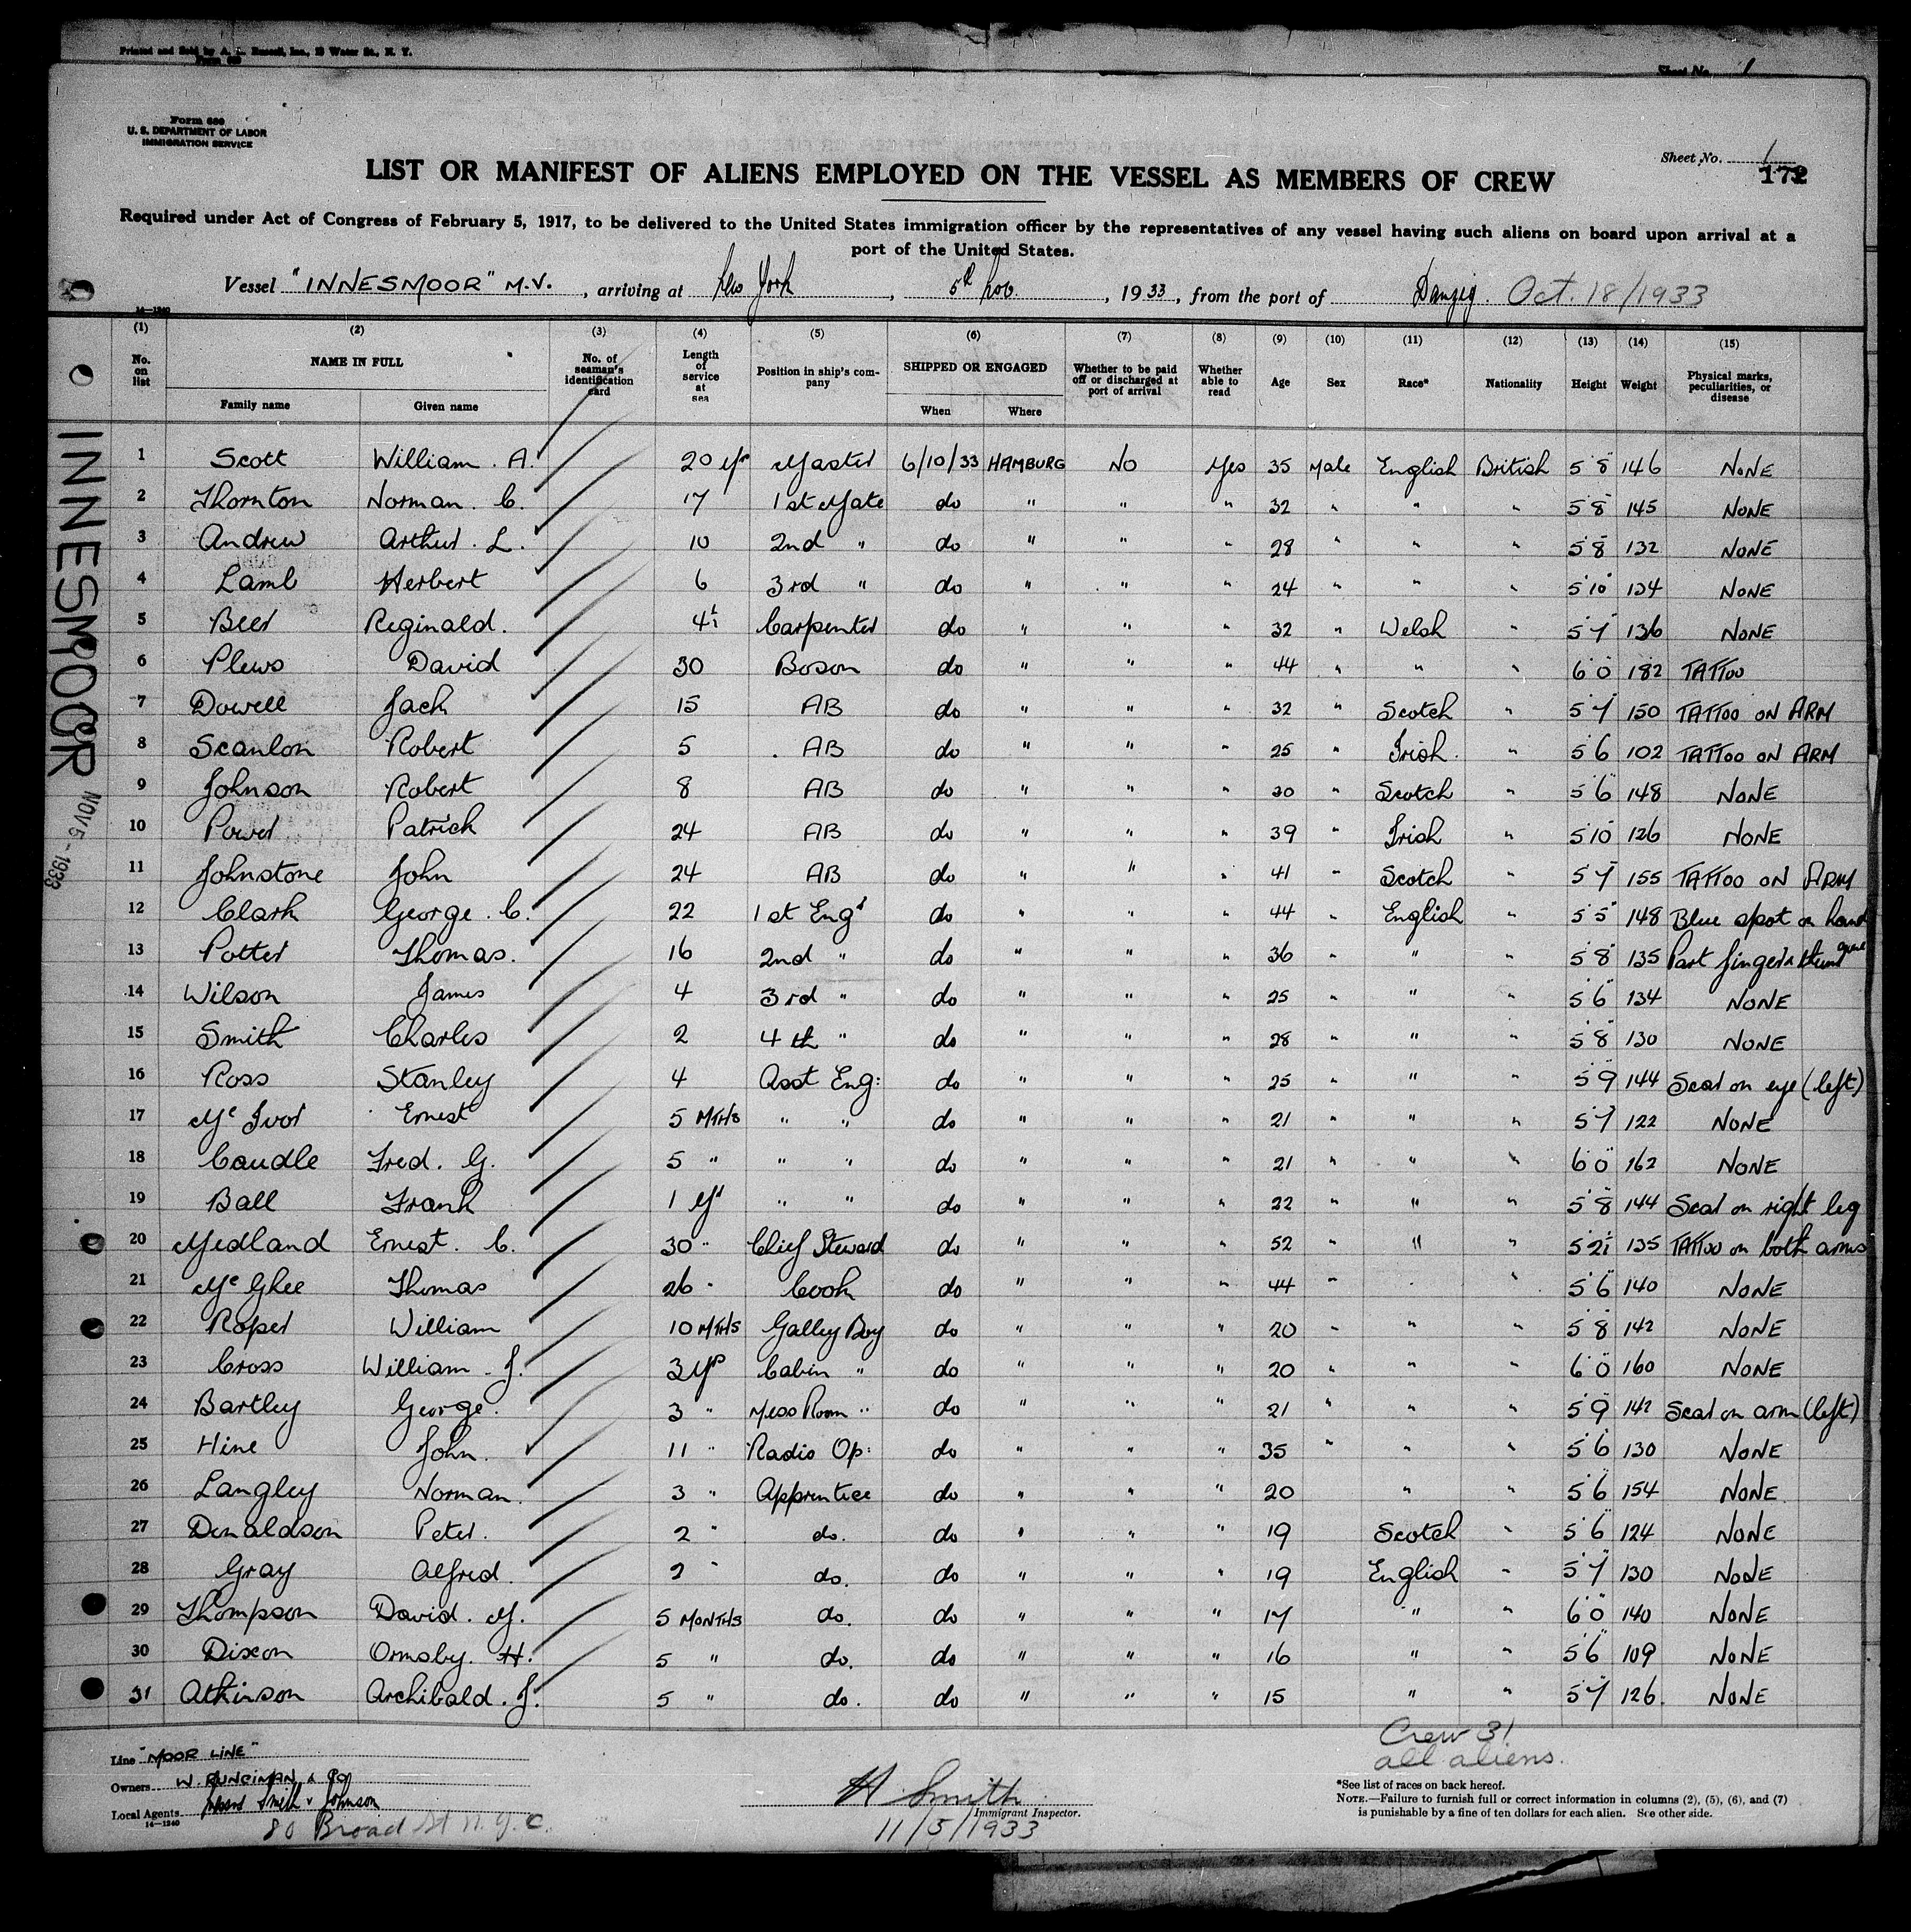 Printed and Sold by A. L. Russell, Inc., 19 Water St., N. Y.
Sheet No. 1
Form 680
U. S. DEPARTMENT OF LABOR
IMMIGRATION SERVICE
Sheet No. 1
172
LIST OR MANIFEST OF ALIENS EMPLOYED ON THE VESSEL AS MEMBERS OF CREW
Required under Act of Congress of February 5, 1917, to be delivered to the United States immigration officer by the representatives of any vessel having such aliens on board upon arrival at a
port of the United States.
Vessel "INNESMOOR" M.V., arriving at New York, 5th Nov., 1933, from the port of Danzig. Oct. 18/1933
14—1240
(1) (2) (3) (4) (5) (6) (7) (8) (9) (10) (11) (12) (13) (14) (15)
No. on list NAME IN FULL No. of seaman's identification card Length of service at sea Position in ship's company SHIPPED OR ENGAGED Whether to be paid off or discharged at port of arrival Whether able to read Age Sex Race* Nationality Height Weight Physical marks, peculiarities, or disease
Family name Given name When Where
1 Scott William. A. 20 yrs Master 6/10/33 HAMBURG NO Yes 35 Male English British 5'8" 146 NONE
2 Thornton Norman. C. 17 1st Mate do " " " 32 " " " 5'8" 145 NONE
3 Andrew Arthur. L. 10 2nd " do " " " 28 " " " 5'8" 132 NONE
4 Lamb Herbert 6 3rd " do " " " 24 " " " 5'10" 134 NONE
5 Beer Reginald. 4½ Carpenter do " " " 32 " Welsh " 5'7" 136 NONE
6 Plews David 30 Boson do " " " 44 " " " 6'0" 182 TATTOO
7 Dowell Jack 15 AB do " " " 32 " Scotch " 5'7" 150 TATTOO ON ARM
8 Scanlon Robert 5 AB do " " " 25 " Irish. " 5'6" 102 TATTOO ON ARM
9 Johnson Robert 8 AB do " " " 30 " Scotch " 5'6" 148 NONE
10 Power Patrick 24 AB do " " " 39 " Irish " 5'10" 126 NONE
11 Johnstone John 24 AB do " " " 41 " Scotch " 5'7" 155 TATTOO ON ARM
12 Clark George. C. 22 1st Engr do " " " 44 " English " 5'5" 148 Blue spot on hand
13 Potter Thomas. 16 2nd " do " " " 36 " " " 5'8" 135 Part finger & thumb gone
14 Wilson James 4 3rd " do " " " 25 " " " 5'6" 134 NONE
15 Smith Charles 2 4th " do " " " 28 " " " 5'8" 130 NONE
16 Ross Stanley 4 Asst Eng: do " " " 25 " " " 5'9" 144 Scar on eye (left)
17 Mc Ivor Ernest 5 MTHS " " do " " " 21 " " " 5'7" 122 NONE
18 Caudle Fred. G. 5 " " " do " " " 21 " " " 6'0" 162 NONE
19 Ball Frank 1 yr " " do " " " 22 " " " 5'8" 144 Scar on right leg
20 Medland Ernest. C. 30 " Chief Steward do " " " 52 " " " 5'2½" 135 TATTOO on both arms
21 Mc Ghee Thomas 26 " Cook do " " " 44 " " " 5'6" 140 NONE
22 Roper William 10 MTHS Galley Boy do " " " 20 " " " 5'8" 142 NONE
23 Cross William J. 3 yrs Cabin " do " " " 20 " " " 6'0" 160 NONE
24 Bartley George. 3 " Mess Room " do " " " 21 " " " 5'9" 142 Scar on arm (left)
25 Hine John. 11 " Radio Op: do " " " 35 " " " 5'6" 130 NONE
26 Langley Norman. 3 " Apprentice do " " " 20 " " 5'6" 154 NONE
27 Donaldson Peter. 2 " do. do " " " 19 Scotch " 5'6" 124 NONE
28 Gray Alfred. 2 " do. do " " " 19 English " 5'7" 130 NONE
29 Thompson David. M. 5 MONTHS do. do " " " 17 " " 6'0" 140 NONE
30 Dixon Ormsby. H. 5 " do. do " " " 16 " " 5'6" 109 NONE
31 Atkinson Archibald. J. 5 " do. do " " " 15 " " 5'7" 126. NONE
INNESMOOR
NOV 5 - 1933
Crew 31
all aliens.
Line "MOOR LINE"
Owners W. RUNCIMAN & Co
Local Agents Smith & Johnson
14—1240
80 Broad St N.Y.C.
H Smith
Immigrant Inspector.
11/5/1933
*See list of races on back hereof.
NOTE.—Failure to furnish full or correct information in columns (2), (5), (6), and (7)
is punishable by a fine of ten dollars for each alien. See other side.